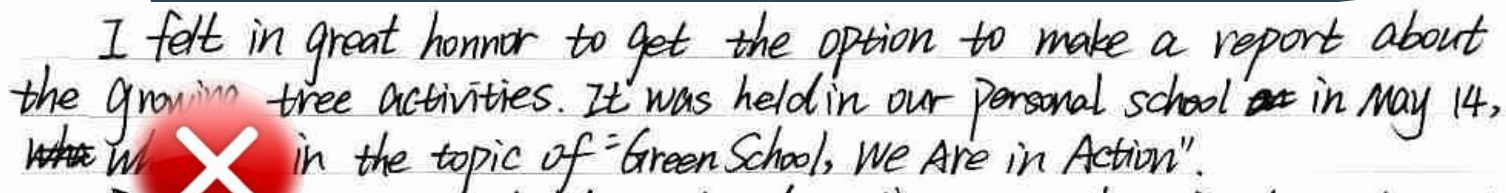 I felt in great honnor to get the option to make a report about
the growing tree activities. It was held in our personal school in May 14,
in the topic of "Green School, We Are in Action".